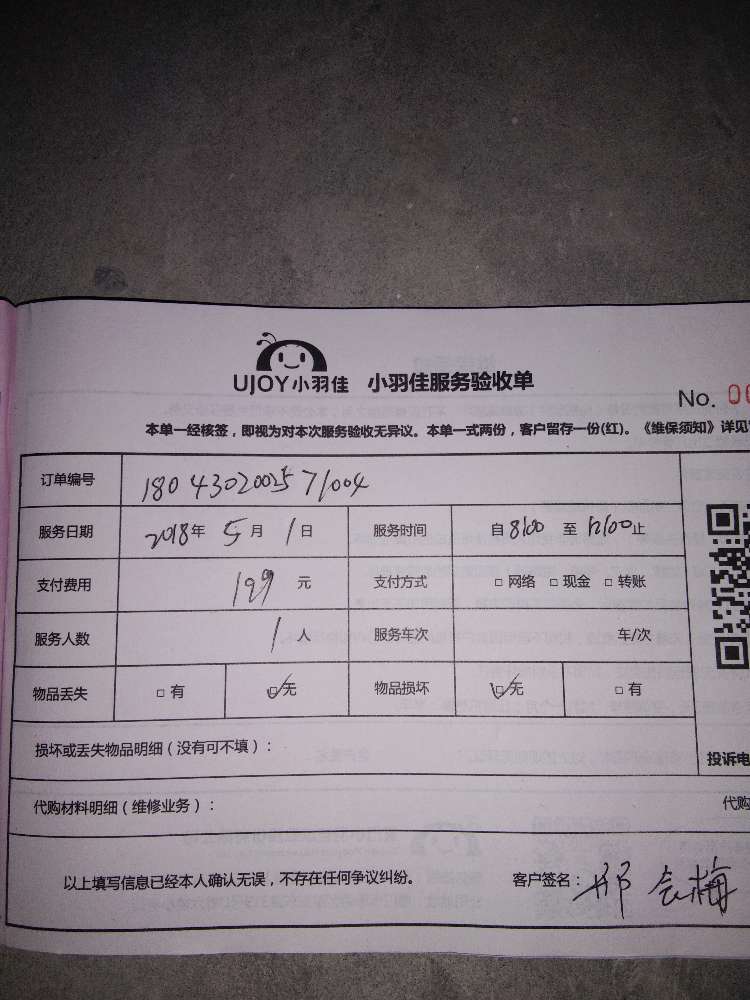 UJOY小羽佳 小羽佳服务验收单
No. 00
本单一经核签，即视为对本次服务验收无异议。本单一式两份，客户留存一份(红)。《维保须知》详见
订单编号 1804302002571004
服务日期 2018年 5月 1日 服务时间 自 8:00 至 12:00止
支付费用 199 元 支付方式 □ 网络 □ 现金 □ 转账
服务人数 1 人 服务车次 车/次
物品丢失 □ 有 ☑无 物品损坏 ☑无 □ 有
损坏或丢失物品明细（没有可不填）：
投诉电
代购材料明细（维修业务）：
代购
以上填写信息已经本人确认无误，不存在任何争议纠纷。 客户签名：邢会梅